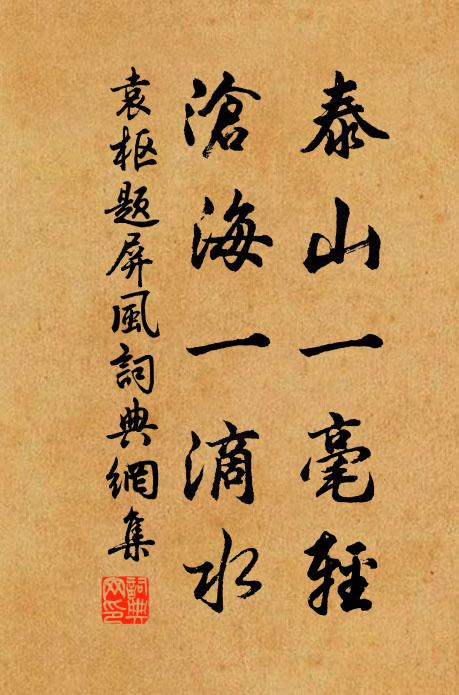 泰山一毫輕
滄海一滴水
袁枢题屏風詞典網集
詞典网印